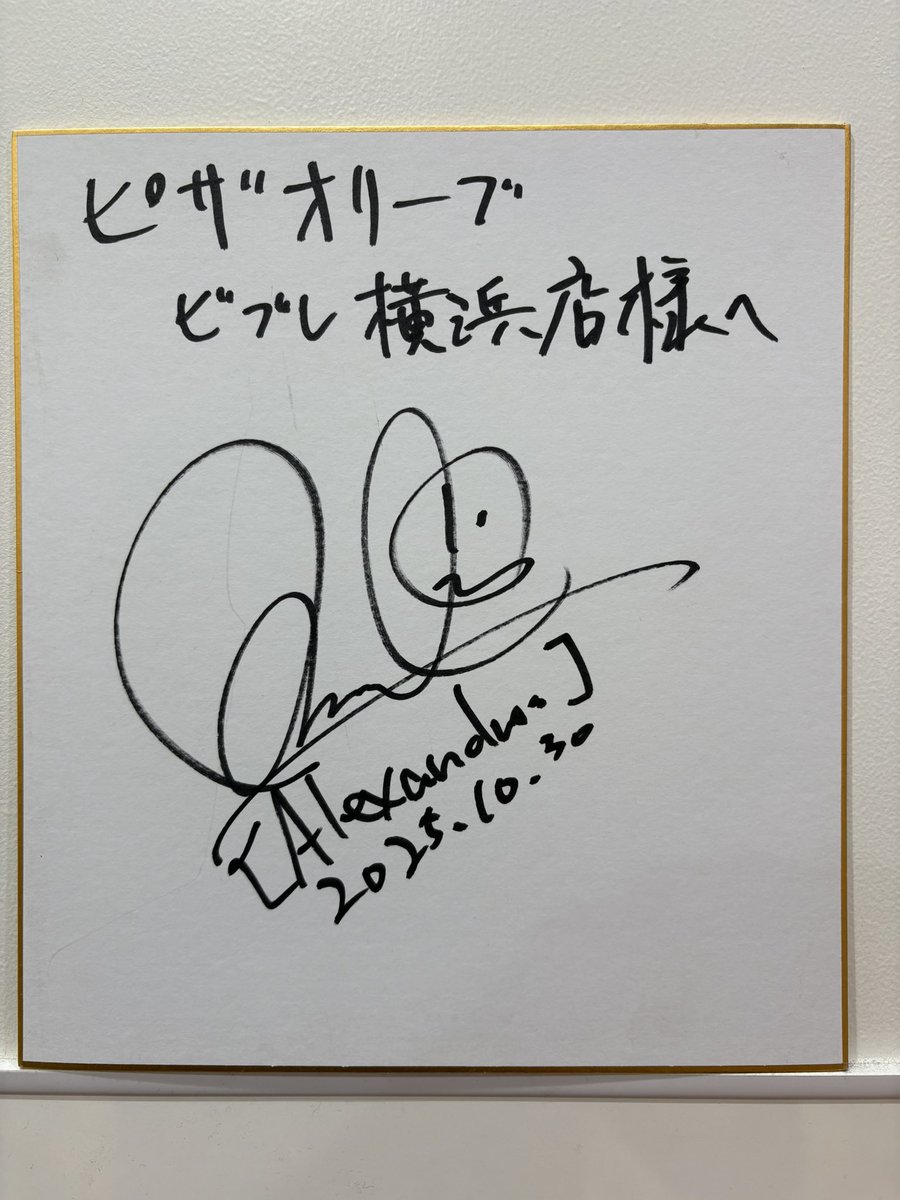 ピザオリーブ
ビブレ横浜店様へ
[Alexandros]
2025.10.30